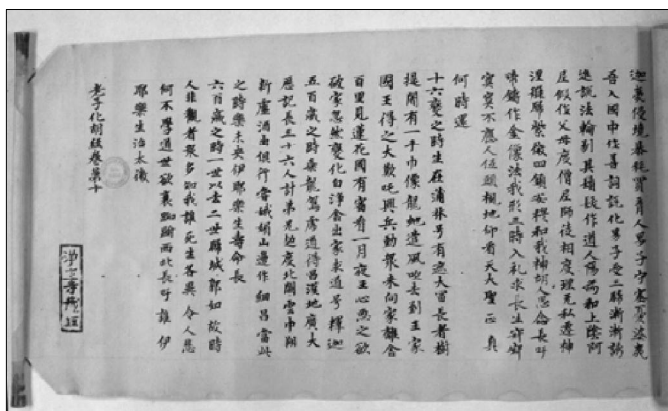 迦夷侵境暴耗買育人男子守塞憂婆夷
吾入國中作善詞說化男子受三歸漸漸誘
進說法輪剔其鬚髮作道人陽為和上陰阿
尼假作父母度僧尼師徒相度理无私遣神
涅槃歸紫微四鎮安穩和我神胡人思念長吁
啼鑄作金像法我形三時入礼求長生窈窈
冥冥不應人低頭視地仰看天大聖正真
何時還
十六變之時生在蒲林号有遮大富長者樹
提閒有一手巾像龍虵遣風吹去到王家
國王得之大歡吒興兵動眾來向家離舍
百里見蓮花國有審看一月夜王心惡之欲
破家忽然變化白淨舍出家求道号釋迦
五百歲之時乘龍駕虎道得昌漢地廣大
歷記長三十六人計弟兄超度北闕雲中翔
新盧酒泉俱行當城胡山邊作細昌當此
之時樂未央伊耶樂生壽命長
六百歲之時一世以去二世歸城郭如故時
人非觀者眾多知我誰死生各異令人悲
何不學道世欲衰踟躕西北長吁誰伊
耶樂生治太微
老子化胡經卷第十
淨土寺藏經